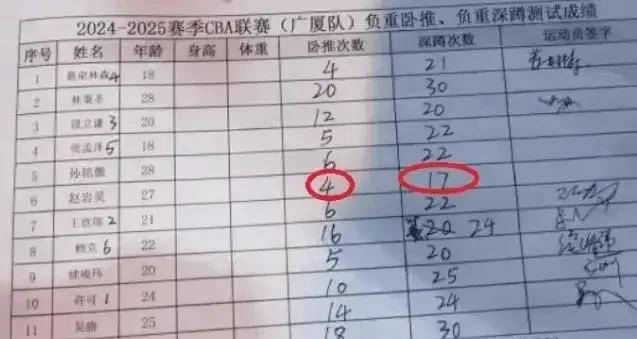 2024-2025赛季CBA联赛（广厦队）负重卧推、负重深蹲测试成绩
序号 姓名 年龄 身高 体重 卧推次数 深蹲次数 运动员签字
1 林森 4 18 4 21
2 林秉圣 28 20 30
3 段立谦 3 20 12 20
4 侯孟泽 5 18 5 22
5 孙铭徽 28 6 22
6 赵岩昊 27 4 17
7 王 2 21 6 22
8 赖克 6 22 16 20 24
9 20 5 20
10 许可 1 24 10 25
11 吴骁 25 14 24
18 30